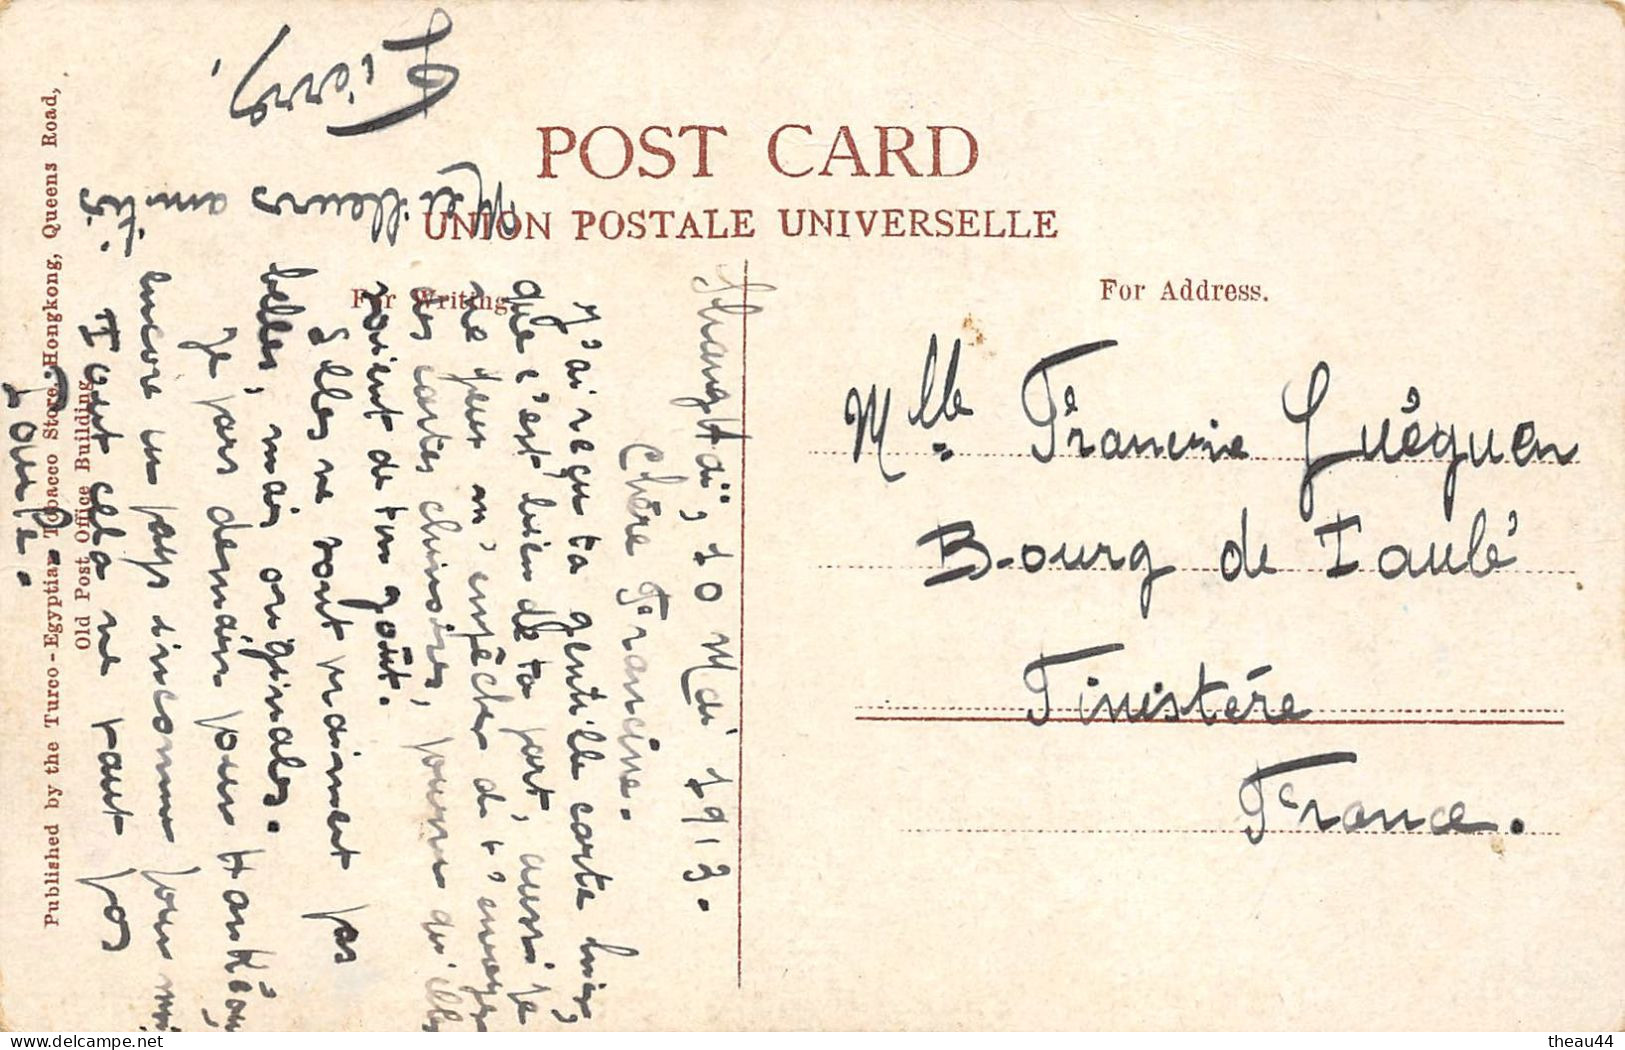 POST CARD
UNION POSTALE UNIVERSELLE
For Writing.
For Address.
Published by the Turco-Egyptian Tobacco Store, Hongkong, Queens Road,
Old Post Office Building.
Shanghaï, 10 Mai 1913.
Chère Francine.
J'ai reçu ta gentille carte hier,
que c'est bien de ta part, aussi je
ne peux m'empêcher de t'envoyer
des cartes chinoises, pourvu qu'elles
soient de ton goût.
Elles ne sont vraiment pas
belles, mais originales.
Je pars demain pour Hankéou,
encore un pays inconnu pour moi
Tout cela ne vaut pas
Taulé.
Meilleurs amitiés.
Pierre,
Mlle Francine Guéguen
Bourg de Taulé
Finistère
France.
delcampe.net
theau44